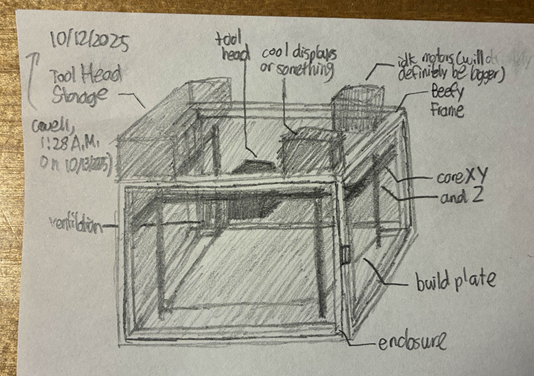 10/12/2025
Tool Head
Storage
1:28 A.M.
on 10/13/2025)
tool
head
cool displays
or something
idk motors (will
definitely be bigger)
Beefy
Frame
coreXY
and Z
ventilation
build plate
enclosure